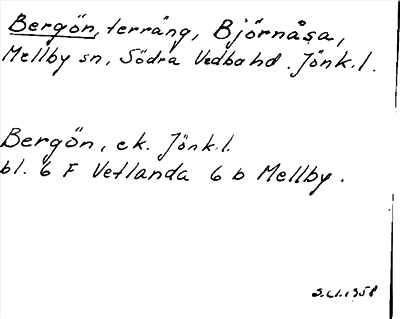 Bergön, terräng, Björnåsa,
Mellby sn, Södra Vedbo hd. Jönk.l.
Bergön, ek. Jönk.l.
bl. 6 F Vetlanda 6 b Mellby.
1958